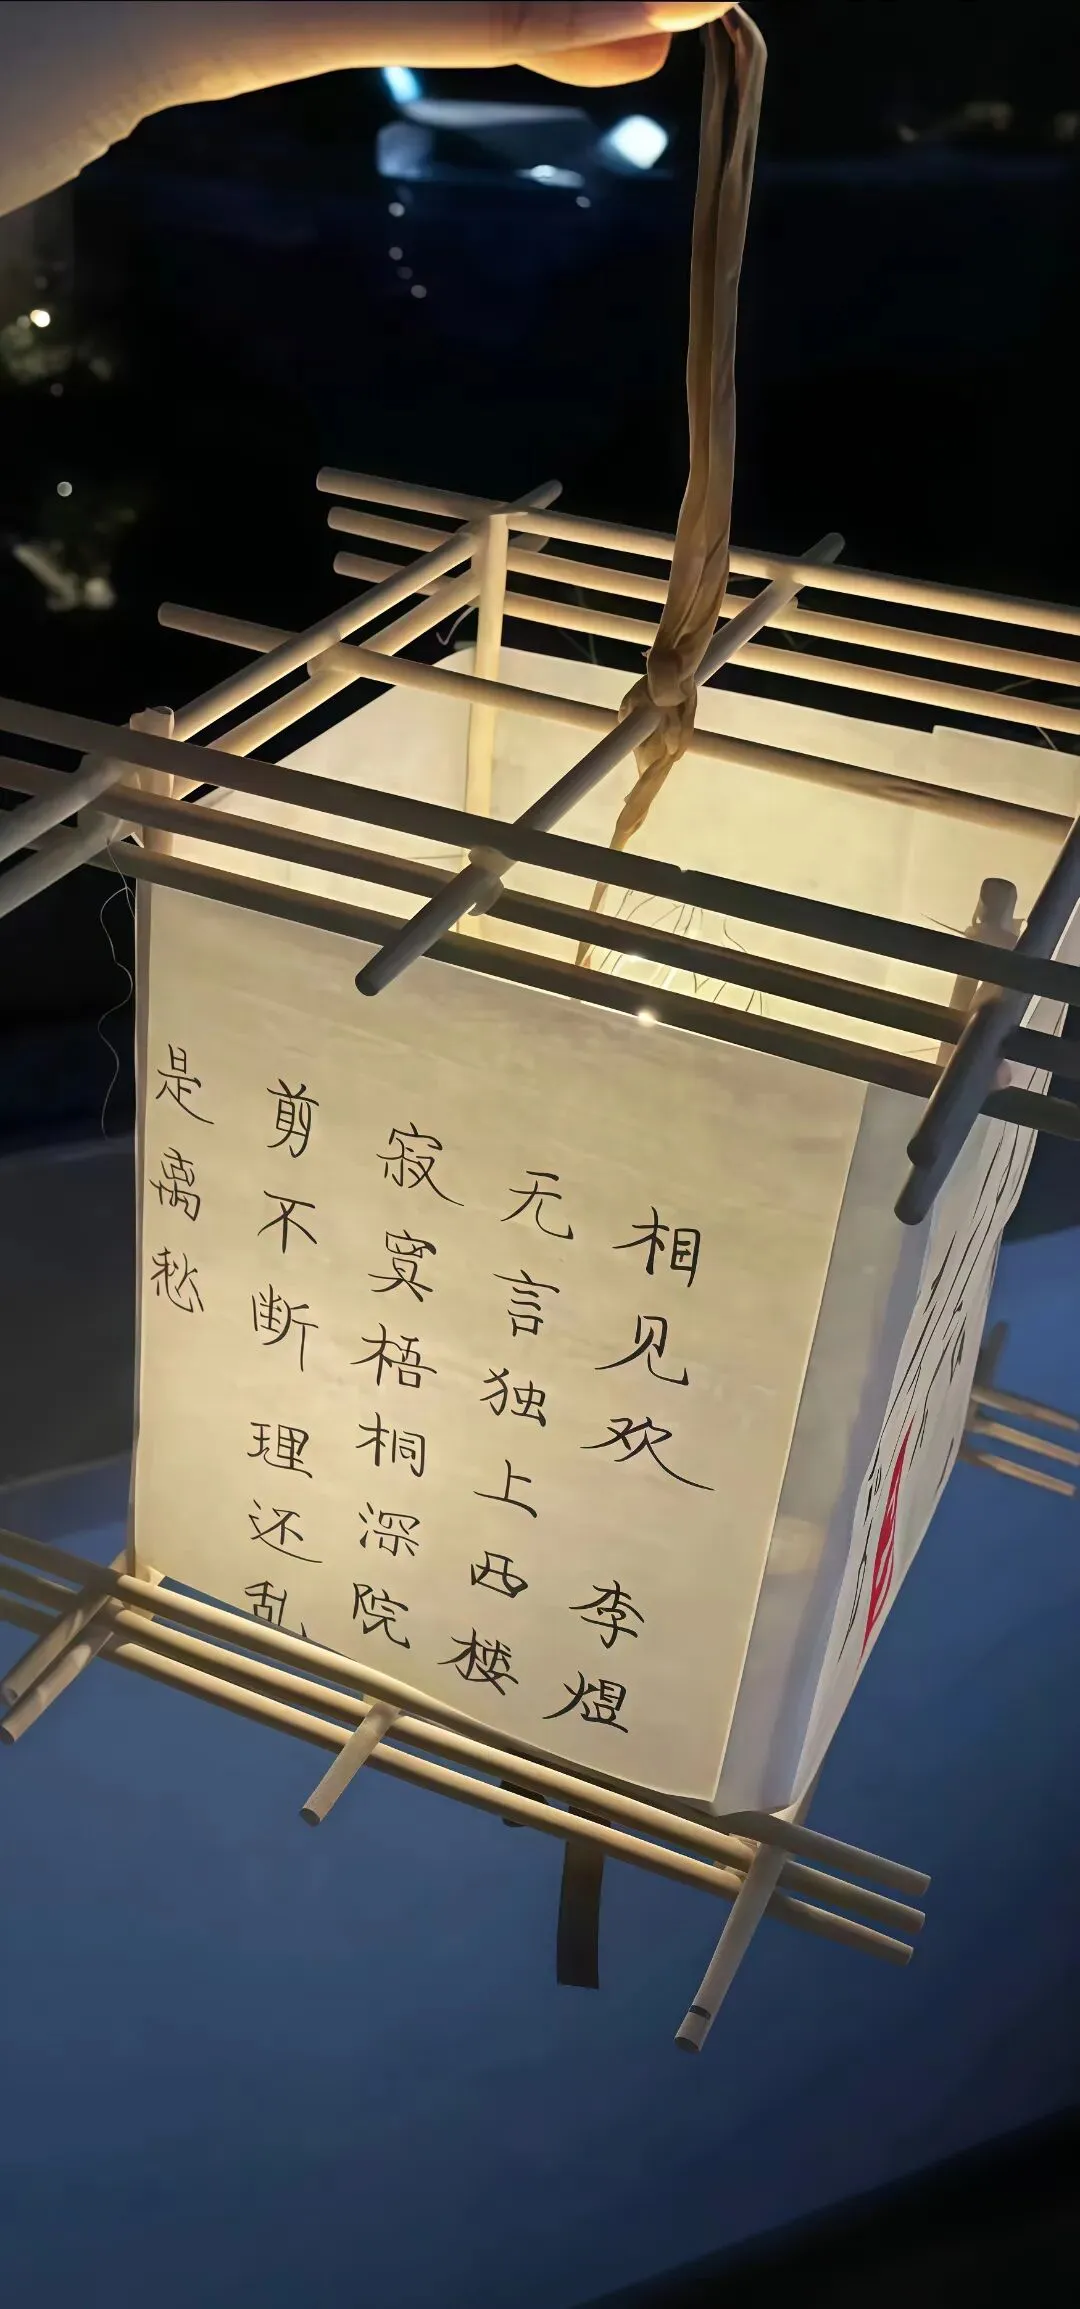 相见欢 李煜
无言独上西楼
寂寞梧桐深院
剪不断 理还乱
是离愁